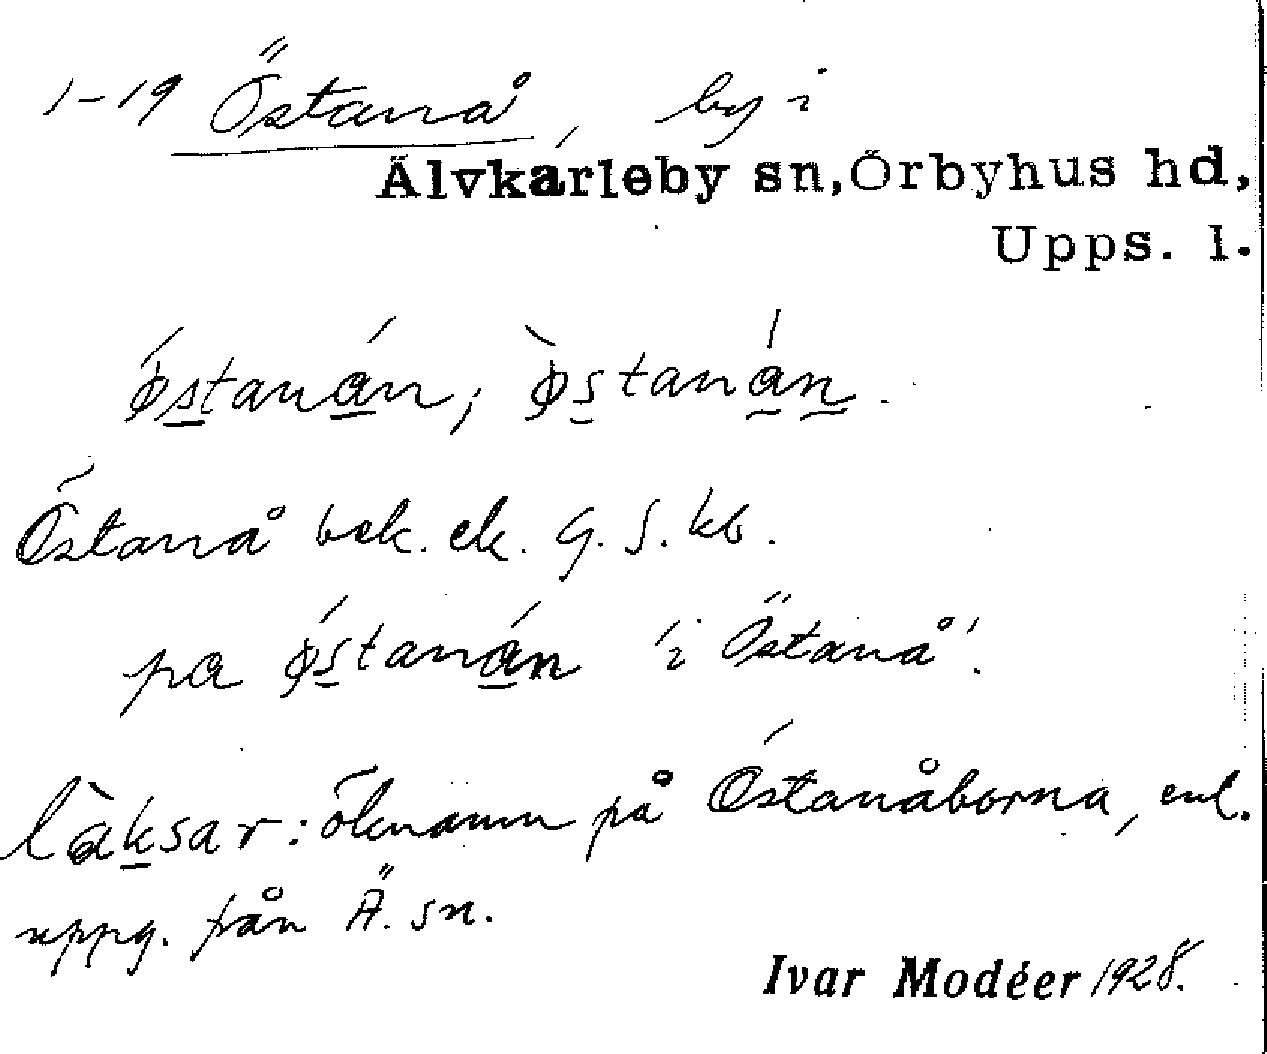 1-19 Östanå, by i
Älvkarleby sn, Örbyhus hd,
Upps. l.
ǿstanán; ø̀stanán.
Östanå bek. ek. G. S. kb.
pa ǿstanán 'i Östanå'.
làksar: öknamn på Östanåborna, enl.
uppg. från Ä. sn.
Ivar Modéer 1928.